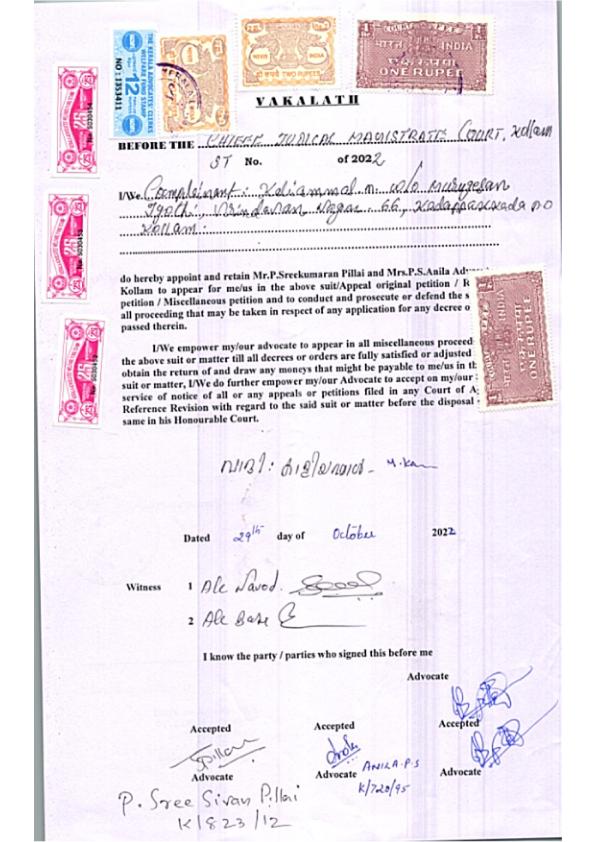 COURT FEE
भारत INDIA
एक रुपया
ONE RUPEE
INDIA
दो रुपये TWO RUPEES
THE KERALA ADVOCATES' CLERKS
WELFARE FUND STAMP
12
NO : 1353411
25
No 5030454
25
25
VAKALATH
BEFORE THE CHIEF JUDICAL MAGISTRATE COURT, Kollam
ST No. of 2022
I/We Complainant: Kaliammal m. w/o Murugesan
Nagar 66, Kadappakkada P.O
Kollam.
do hereby appoint and retain Mr.P.Sreekumaran Pillai and Mrs.P.S.Anila
Kollam to appear for me/us in the above suit/Appeal original petition /
petition / Miscellaneous petition and to conduct and prosecute or defend the
all proceeding that may be taken in respect of any application for any decree o
passed therein.
I/We empower my/our advocate to appear in all miscellaneous proceed
the above suit or matter till all decrees or orders are fully satisfied or adjusted
obtain the return of and draw any moneys that might be payable to me/us in th
suit or matter, I/We do further empower my/our Advocate to accept on my/our
service of notice of all or any appeals or petitions filed in any Court of A
Reference Revision with regard to the said suit or matter before the disposal
same in his Honourable Court.
COURT FEE
भारत INDIA
एक रुपया
ONE RUPEE
Dated 29th day of October 2022
Witness 1 Alc
2 Alc
I know the party / parties who signed this before me
Advocate
Accepted Accepted Accepted
Advocate Advocate ANILA.P.S Advocate
K/720/95
P. Sree Sivan Pillai
K/823/12